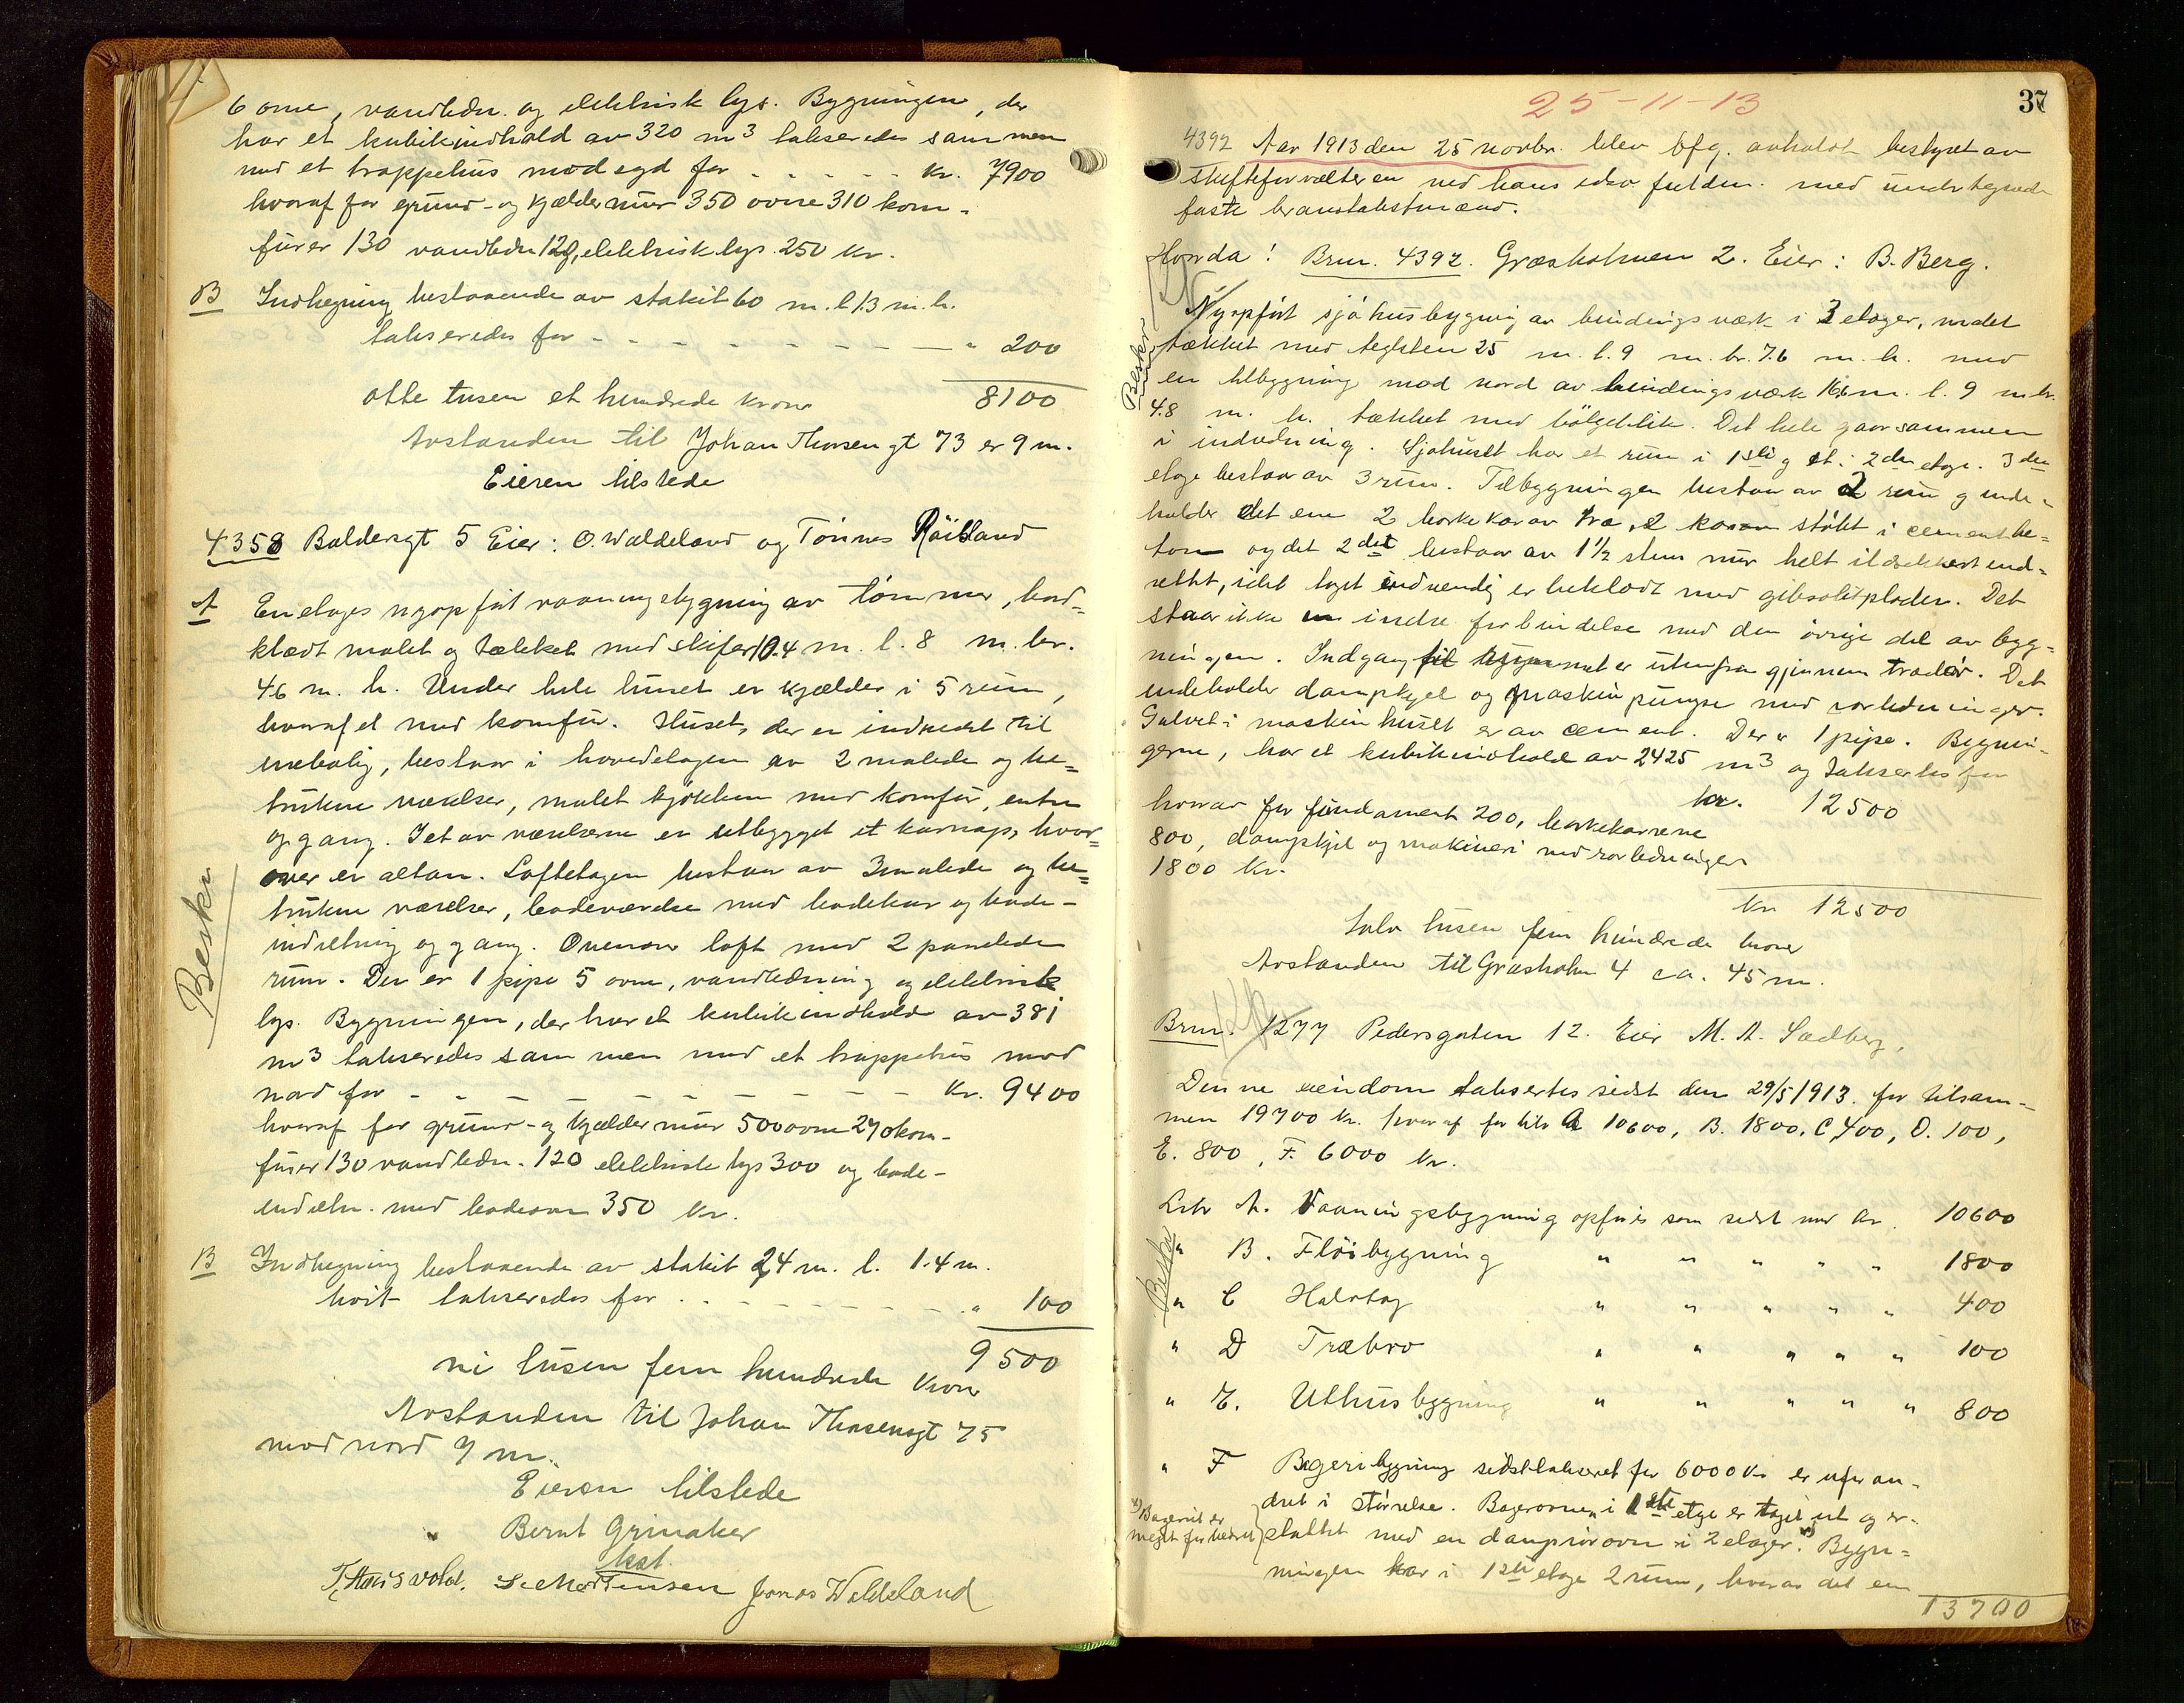 6 ovne, vandledn. og elektrisk lys. Bygningen, der
har et kubikindhold av 320 m3 takseredes sammen
med et trappehus mod syd for - - - - - kr. 7900
hvoraf for grund- og kjældermur 350 ovne 310 kom-
fürer 130 vandledn 120, elektrisk lys 250 kr.
B Indhegning bestaaende av stakit 60 m. l. 1.3 m. h.
takseredes for - - - - - - - - - " 200
8100
otte tusen et hundrede kroner
Avstanden til Johan Thorsengt 73 er 9 m.
Eieren tilstede
4358 Baldersgt 5 Eier: O. Waldeland og Tönnes Röisland
A En etages nyopfört vaaningsbygning av tömmer, bord-
klædt malet og tækket med skifer 10.4 m. l. 8 m. br.
4.6 m. h. Under hele huset er kjælder i 5 rüm,
hvoraf et med komfür. Huset, der er indredet til
enebolig, bestaar i hovedetagen av 2 malede og be-
trukne værelser, malet kjökken med komfür, entre
og gang. I et av værelserne er utbygget et karnap, hvor-
over er altan. Loftetagen bestaar av 3 malede og be-
trukne værelser, badeværelse med badekar og bade-
indretning og gang. Ovenover loft med 2 panelede
rüm. Der er 1 pipe 5 ovne, vandledning og elektrisk
lys. Bygningen, der har et kubikindhold av 381
m3 takseredes sammen med et trappehus mod
nord for - - - - - - - - - - kr. 9400
hvoraf for grund- og kjældermur 500 ovne 270 kom-
fürer 130 vandledn. 120 elektriske lys 300 og bade-
indretn. med badeovn 350 kr.
Beskr
B Indhegning bestaaende av stakit 24 m. l. 1.4 m.
höit takseredes for - - - - - - - - - " 100
9500
ni tusen fem hundrede kroner
Avstanden til Johan Thorsensgt 75
mod nord 7 m.
Eieren tilstede
" Bernt Grinaker
kst.
S. Mortensen Jonas Waldeland
37
25-11-13
4392 Aar 1913 den 25 novbr. blev bfg. avholdt bestyret av
skifteforvalteren ved hans edsv fuldm. med undertegnede
faste branntakstmænd.
Hvorda! Brnr. 4392. Græsholmen 2. Eier: B. Berg.
Nyopfört sjöhusbygning av bindingsværk i 3 etager, malet
tækket med teglsten 25 m. l. 9 m. br. 7.6 m. h. med
en tilbygning mod nord av bindingsværk 16.6 m. l. 9 m. br.
4.8 m. h. tækket med bölgeblik. Det hele gaar sammen
i indredning. Sjöhuset har et rüm i 1ste og et i 2den etage. 3die
etage bestaar av 3 rüm. Tilbygningen bestaar av 2 rüm og inde-
holder det ene 2 barkekar av træ, 2 kar stöbt i cementbe-
ton og det 2det bestaar av 1½ stens mur helt ildsikkert ind-
rettet, idet taget indvendig er beklædt med gibsolitplader. Det
staar ikke i indre forbindelse med den övrige del av byg-
ningen. Indgang til er utenfra gjennem trædör. Det
indeholder dampkjel og maskin pumpe med rorledninger.
Gulvet i maskinhuset er av cement. Der er 1 pipe. Bygnin-
gerne, har et kubikindhold av 2425 m3 og takseres for
kr. 12500
hvorav for fundament 200, barkekarrene
800, dampkjel og maskineri med rorledninger
1800 kr.
Beskr
kr 12500
tolv tusen fem hundrede kroner
Avstanden til Græsholm 4 ca. 45 m.
Brnr. 1277 Pedersgaten 12. Eier M. A. Sædberg.
Denne eiendom taksertes sidst den 29/5 1913. for tilsam-
men 19700 kr. hvoraf for litr A 10600, B. 1800, C 400, D. 100,
E. 800, F. 6000 kr.
Litr A. Vaaningsbygning opföres som sidst med kr. 10600
" B. Flöibygning " " " " " 1800
" C Halvtag " " " " " 400
" D Træbro " " " " " 100
" E. Uthusbygning " " " " " 800
Beskr
" F Bageribygning sidst takseret for 6000 kr er uforan-
dret i störrelse. Bagerovnen i 1ste etage er taget ut og er-
stattet med en dampsrörovn i 2 etager. x) Bygn-
x) Bageriet er
meget forbedret
ningen har i 1ste etage 2 rüm, hvorav det ene
13700